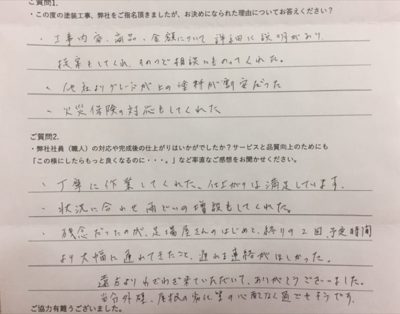 ご質問1.
・この度の塗装工事、弊社をご指名頂きましたが、お決めになられた理由についてお答えください？
・工事内容、商品、金額について詳細に説明があり、
提案もしてくれ、ものつご相談にものってくれた。
・他社よりグレードが上の塗料が割安だった
・火災保険の対応もしてくれた
ご質問2.
・弊社社員（職人）の対応や完成後の仕上がりはいかがでしたか？サービスと品質向上のためにも
「この様にしたらもっと良くなるのに・・・。」など率直なご感想をお聞かせください。
・丁寧に作業してくれた、仕上がりは満足しています。
・状況に合わせ雨どいの増設もしてくれた。
・残念だったのが、足場屋さんのはじめと、終りの2回、予定時間
より大幅に遅れてきたこと、遅れる連絡がほしかった。
遠方よりわざわざ来ていただいて、ありがとうございました。
当分外壁、屋根の劣化等の心配なく過ごせそうです。
ご協力有難うございました。